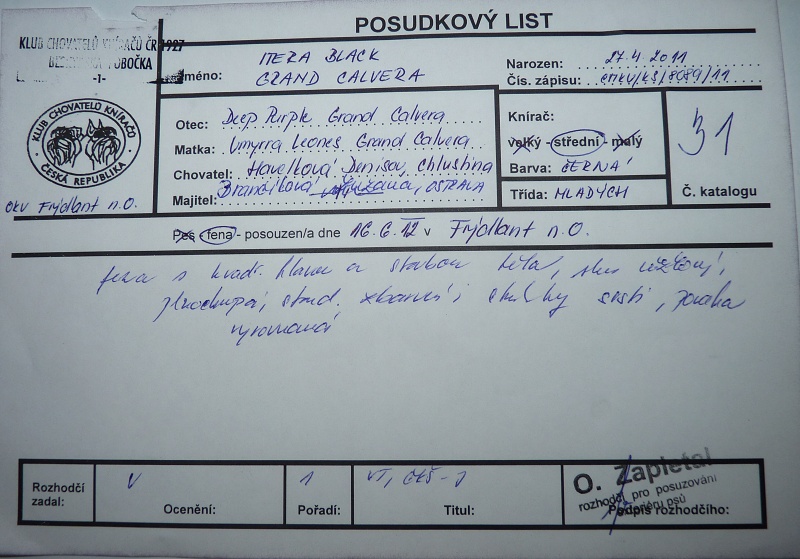 POSUDKOVÝ LIST
KLUB CHOVATELŮ KNÍRAČŮ ČR 1927
POBOČKA
-1-
KLUB CHOVATELŮ KNÍRAČŮ
ČESKÁ REPUBLIKA
OKV Frýdlant n.O.
Jméno: ITERA BLACK
GRAND CALVERA
Narozen: 27.4.2011
Čís. zápisu: ČMKU/KS/8089/11
Otec: Deep Purple Grand Calvera
Matka: Umyrra Leones Grand Calvera
Chovatel: Havelková Denisa, Chlustina
Majitel: Brančíková Zuzana, OSTRAVA
Knírač:
velký - střední - malý
Barva: ČERNÁ
Třída: MLADÝCH
31
Č. katalogu
Pes - fena - posouzen/a dne 16.6.12 v Frýdlant n.O.
fena s kvadr. hlavou a stavbou těla, skus nůžkový,
plnochupá, stand. zbarvení, srsti, povaha
vyrovnaná
Rozhodčí zadal:
V
Ocenění:
1
Pořadí:
VT, CAJC
Titul:
O. Zapletal
rozhodčí pro posuzování
teriéru psů
Podpis rozhodčího: